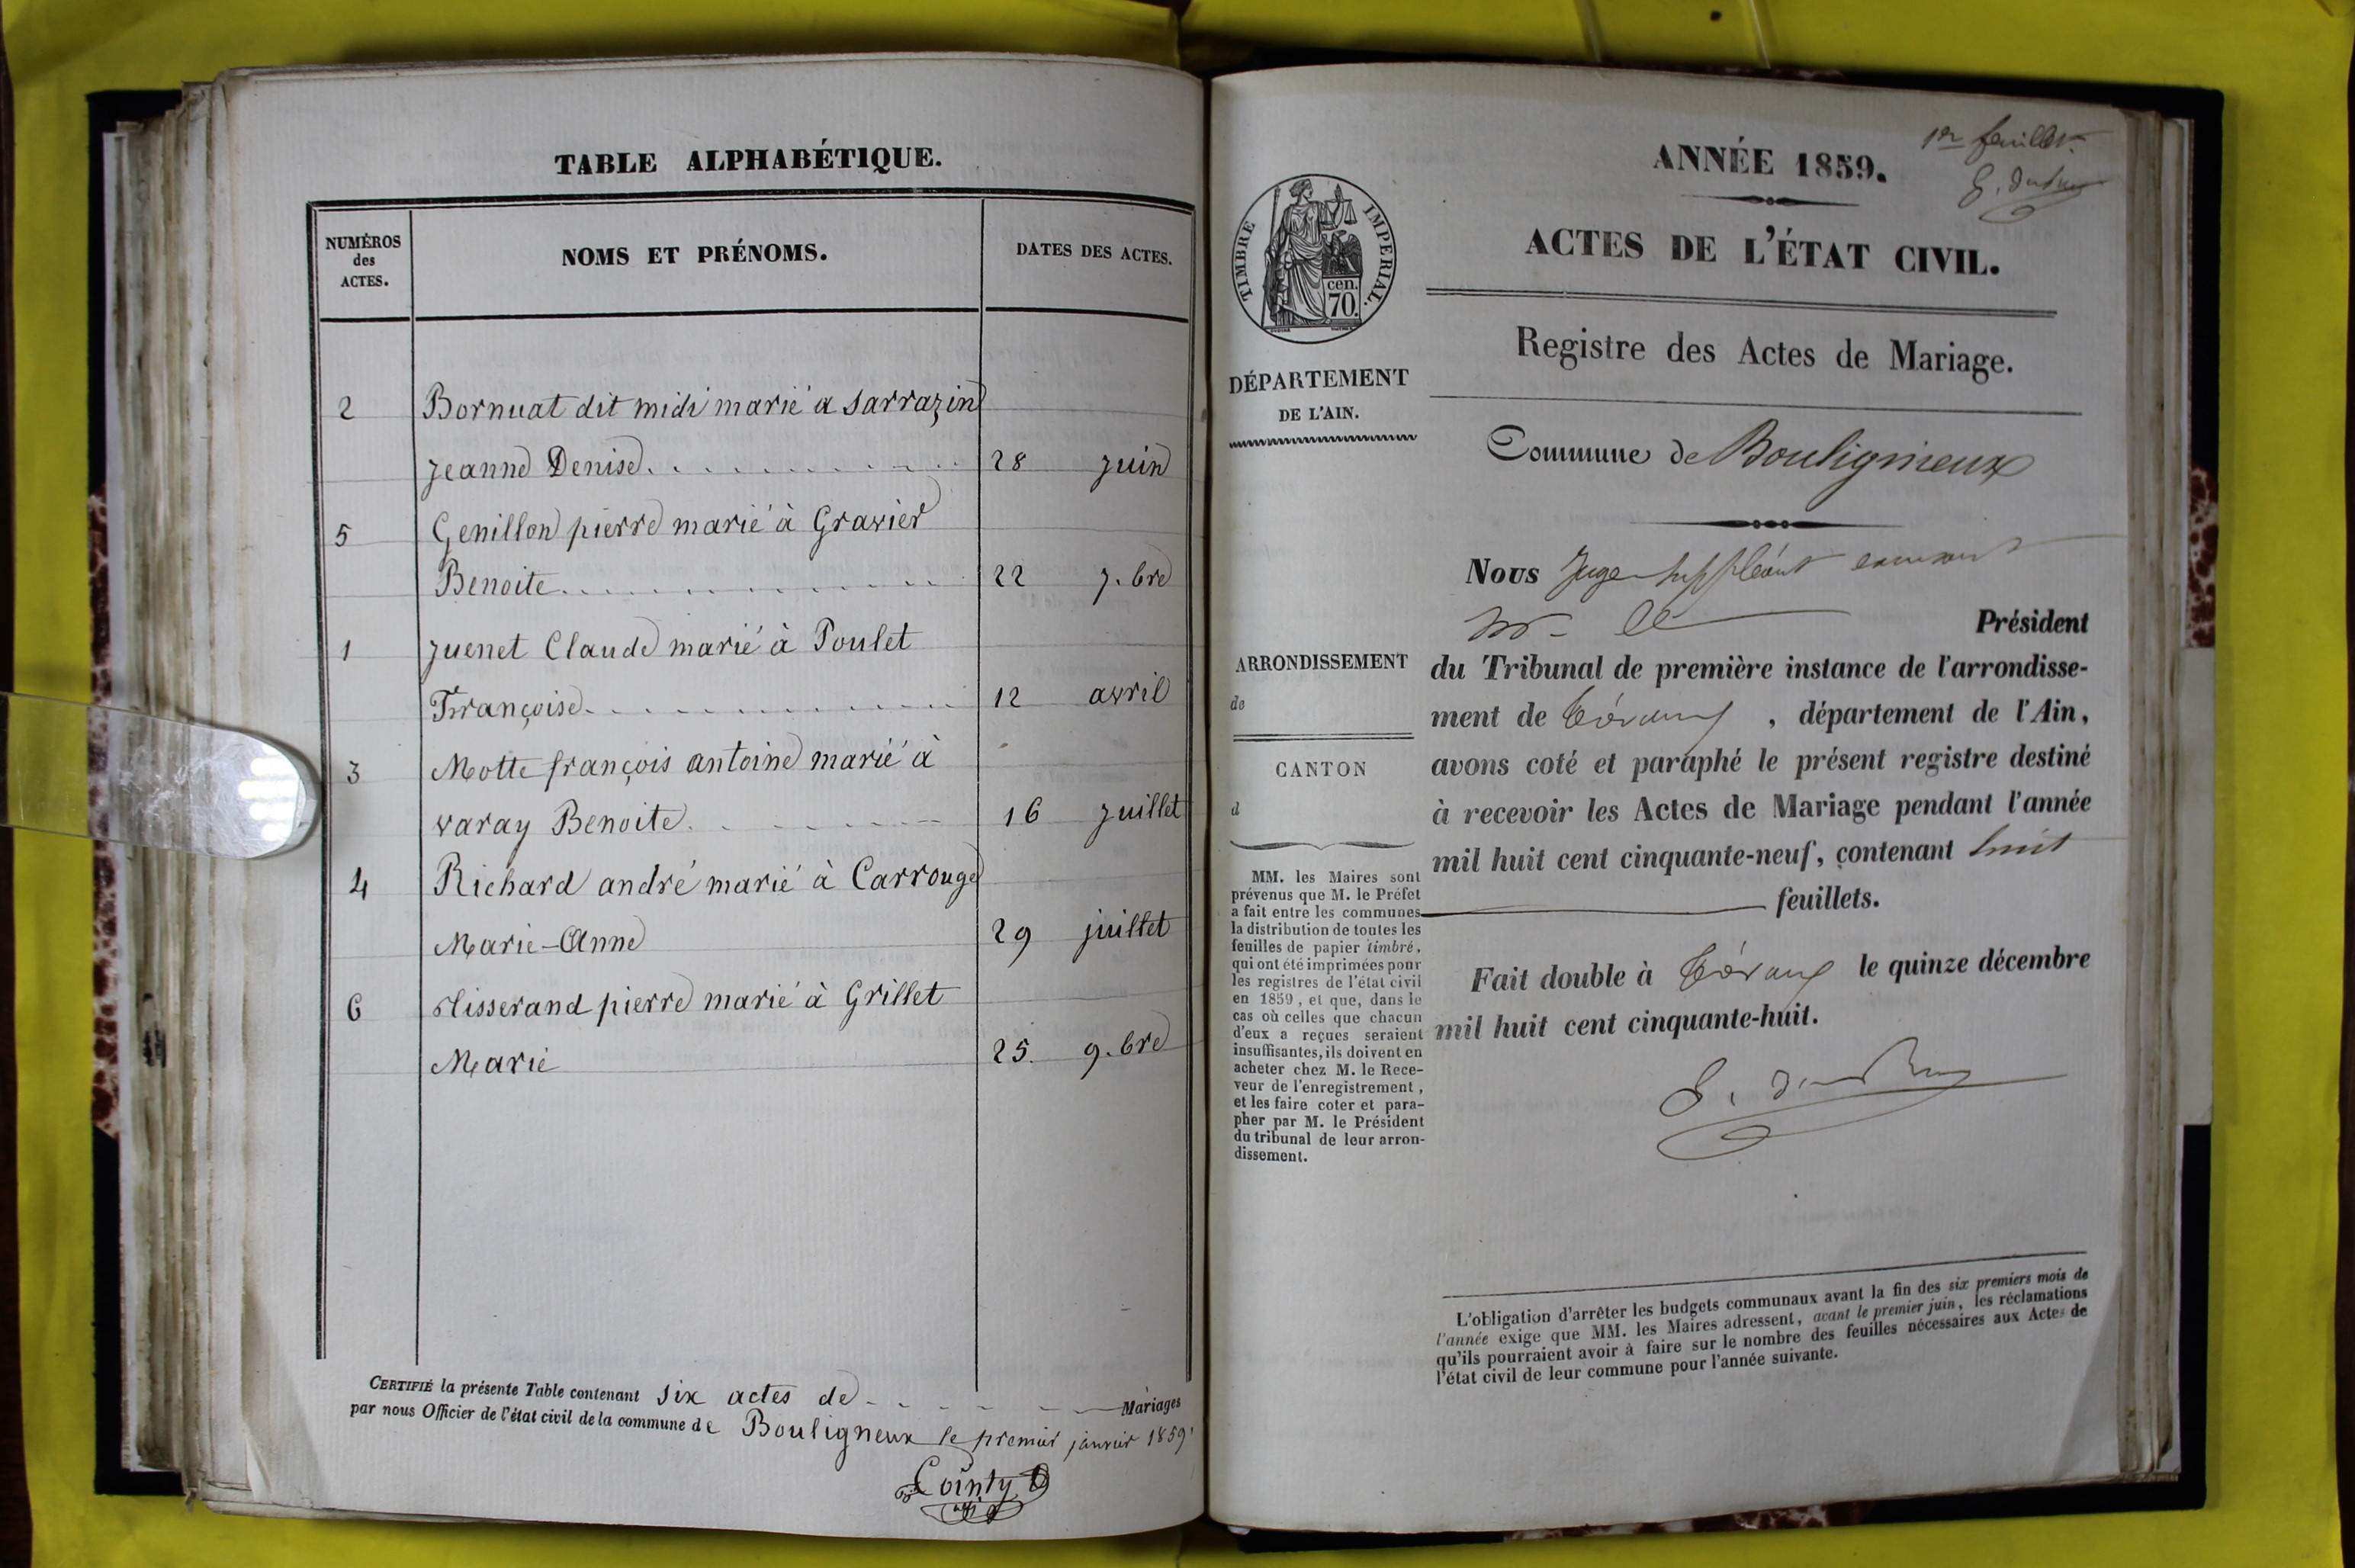 TABLE ALPHABÉTIQUE.
NUMÉROS
des
ACTES.
NOMS ET PRÉNOMS.
DATES DES ACTES.
2 Bornuat dit midi marié a Sarrazin
Jeanne Denise 28 Juin
5 Genillon pierre marié à Gravier
Benoite 22 7.bre
1 Juenet Claude marié à Poulet
Françoise 12 avril
3 Motte françois antoine marié à
varay Benoite 16 Juillet
4 Richard andré marié à Carrouge
Marie-Anne 29 juillet
6 Tisserand pierre marié à Grillet
Marie 25. 9.bre
CERTIFIÉ la présente Table contenant Six actes de Mariages
par nous Officier de l'état civil de la commune de Bouligneux le premier janvier 1859
Cointy
1er feuillet
ANNÉE 1859.
TIMBRE IMPERIAL.
cen.
70.
ACTES DE L'ÉTAT CIVIL.
Registre des Actes de Mariage.
DÉPARTEMENT
DE L'AIN.
Commune de Bouligneux
Nous Juge suppléant
Mr le Président
du Tribunal de première instance de l'arrondisse-
ment de Trévoux, département de l'Ain,
avons coté et paraphé le présent registre destiné
à recevoir les Actes de Mariage pendant l'année
mil huit cent cinquante-neuf, contenant huit
feuillets.
Fait double à Trévoux le quinze décembre
mil huit cent cinquante-huit.
ARRONDISSEMENT
de
CANTON
d
MM. les Maires sont
prévenus que M. le Préfet
a fait entre les communes
la distribution de toutes les
feuilles de papier timbré,
qui ont été imprimées pour
les registres de l'état civil
en 1859, et que, dans le
cas où celles que chacun
d'eux a reçues seraient
insuffisantes, ils doivent en
acheter chez M. le Rece-
veur de l'enregistrement,
et les faire coter et para-
pher par M. le Président
du tribunal de leur arron-
dissement.
L'obligation d'arrêter les budgets communaux avant la fin des six premiers mois de
l'année exige que MM. les Maires adressent, avant le premier juin, les réclamations
qu'ils pourraient avoir à faire sur le nombre des feuilles nécessaires aux Actes de
l'état civil de leur commune pour l'année suivante.